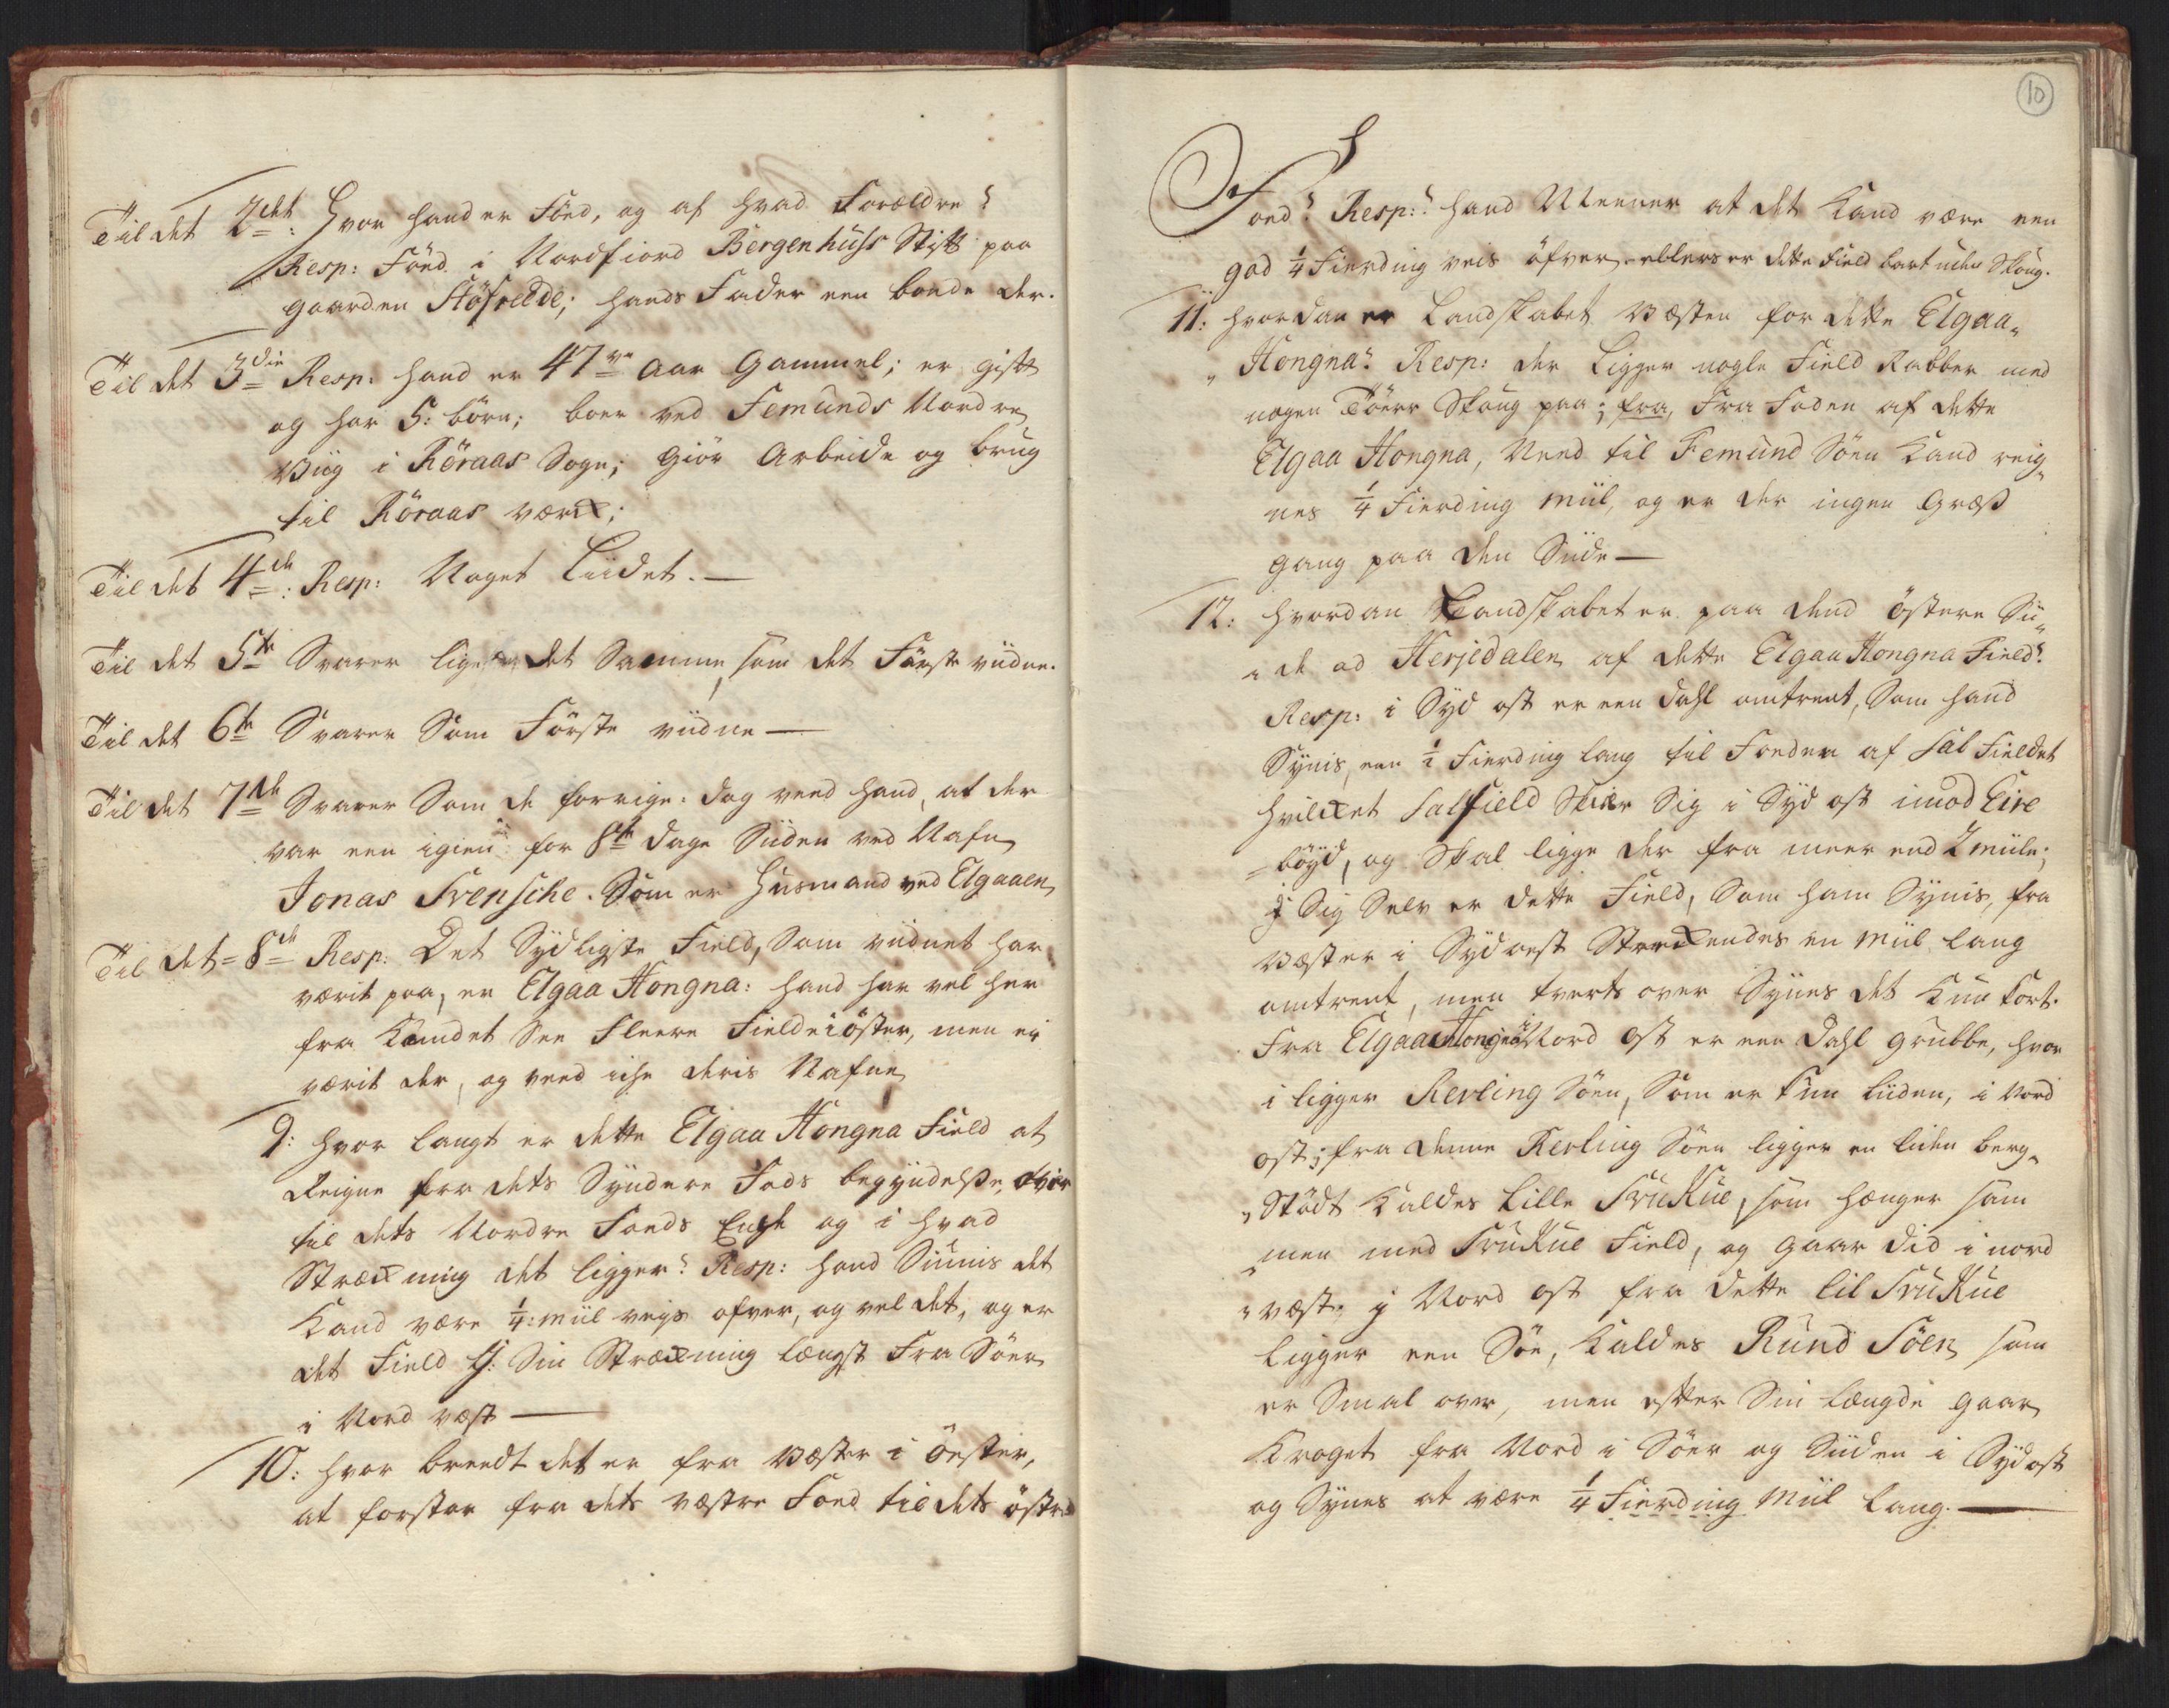 Til det 2det: Hvor hand er Föed, og af hvad Forældre?
Resp: Föed i Nordfiord Bergenhuhs Stift paa
gaarden Stöfredde; hands Fader een bonde der.
Til det 3die Resp: hand er 47ve Aar Gammel; er gift
og har 5: börn; boer ved Femunds Nordre
Viig i Röraas Sogn; giör Arbeide og brug
til Röraas værck;
Til det 4de: Resp: Noget Liidet. —
Til det 5te Svarer lige det Samme, som det Förste viidne.
Til det 6te Svarer Som Förste viidne —
Til det 7de Svarer Som de forrige: dog veed hand, at der
var een igien for 8te dage Siiden ved Nafn
Jonas Svensche. Som er Huusmand ved Elgaaen
Til det = 8de Resp: Det Sydligste Field, Som viidnet har
værit paa, er Elgaa Hongna: hand har vel her
fra Kundet See Fleere Fielde i öster, men ei
værit der, og veed icke deris Nafne
9: hvor langt er dette Elgaa Hongna Field at
Reigne fra dets Syndere Fods begyndelße, over
til dets Nordre Foeds Ende og i hvad
Strækning det ligger? Resp: hand Siunis det
Kand være 1/4: miil veigs ofver, og vel det, og er
det Field Sin Strækning længst Fra Söer
i Nord væst —
10: hvor breedt det er fra Væster i Öester,
at forstaa fra dets væstre Foed til dets östre
10
Foed? Resp:? hand Meener at det Kand være een
god 1/4 Fierding veis öfver, ellers er dette Field bart uden Skoug.
11: hvordan er Landskabet Væsten for dette Elgaa„
„ Hongna? Resp: der Ligger nogle Field Rabber med
nogen Töerr Skoug paa; fra, Fra Foden af dette
Elgaa Hongna, Need til Femund Söen Kand reig„
nes 1/4 Fierding Miil, og er der ingen Græß
gang paa den Siide —
12: hvordan Landskabet er paa dend östere Sii„
„ de ad Herjedalen af dette Elgaa Hongna Field?
Resp: i Syd ost er een dahl omtrent, Som hand
Synis, een 1/2 Fierding lang til Foeden af Sal Fieldet
hvilcket Salfield Sig i Syd ost imod Eire
= böyd, og Skal ligge der fra meer end 2 miile;
i Sig Selv er dette Field, Som ham Synis, fra
Væster i Sydoest Streckendes en Miil lang
omtrent, men tverts over Synes det Kun kort.
Fra Elgaa Hongna i Nord Ost er een Dahl grubbe, hvor
i ligger Rerling Söen, Som er kun liiden, i Nord
ost; fra denne Rerling Söen ligger en liden berg„
„ Stödt Kaldes Lille Svukue, som hænger sam
„ men med Svukue Field, og gaar did i nord
„ væst. i Nord ost fra dette lil Svukue
ligger een Söe, Kaldes Rund Söen, som
er Smal over, men efter Sin Længde gaar
Kroget fra Nord i Söer og Siiden i Sydost
og Synes at være 1/4 Fierding Miil lang. —